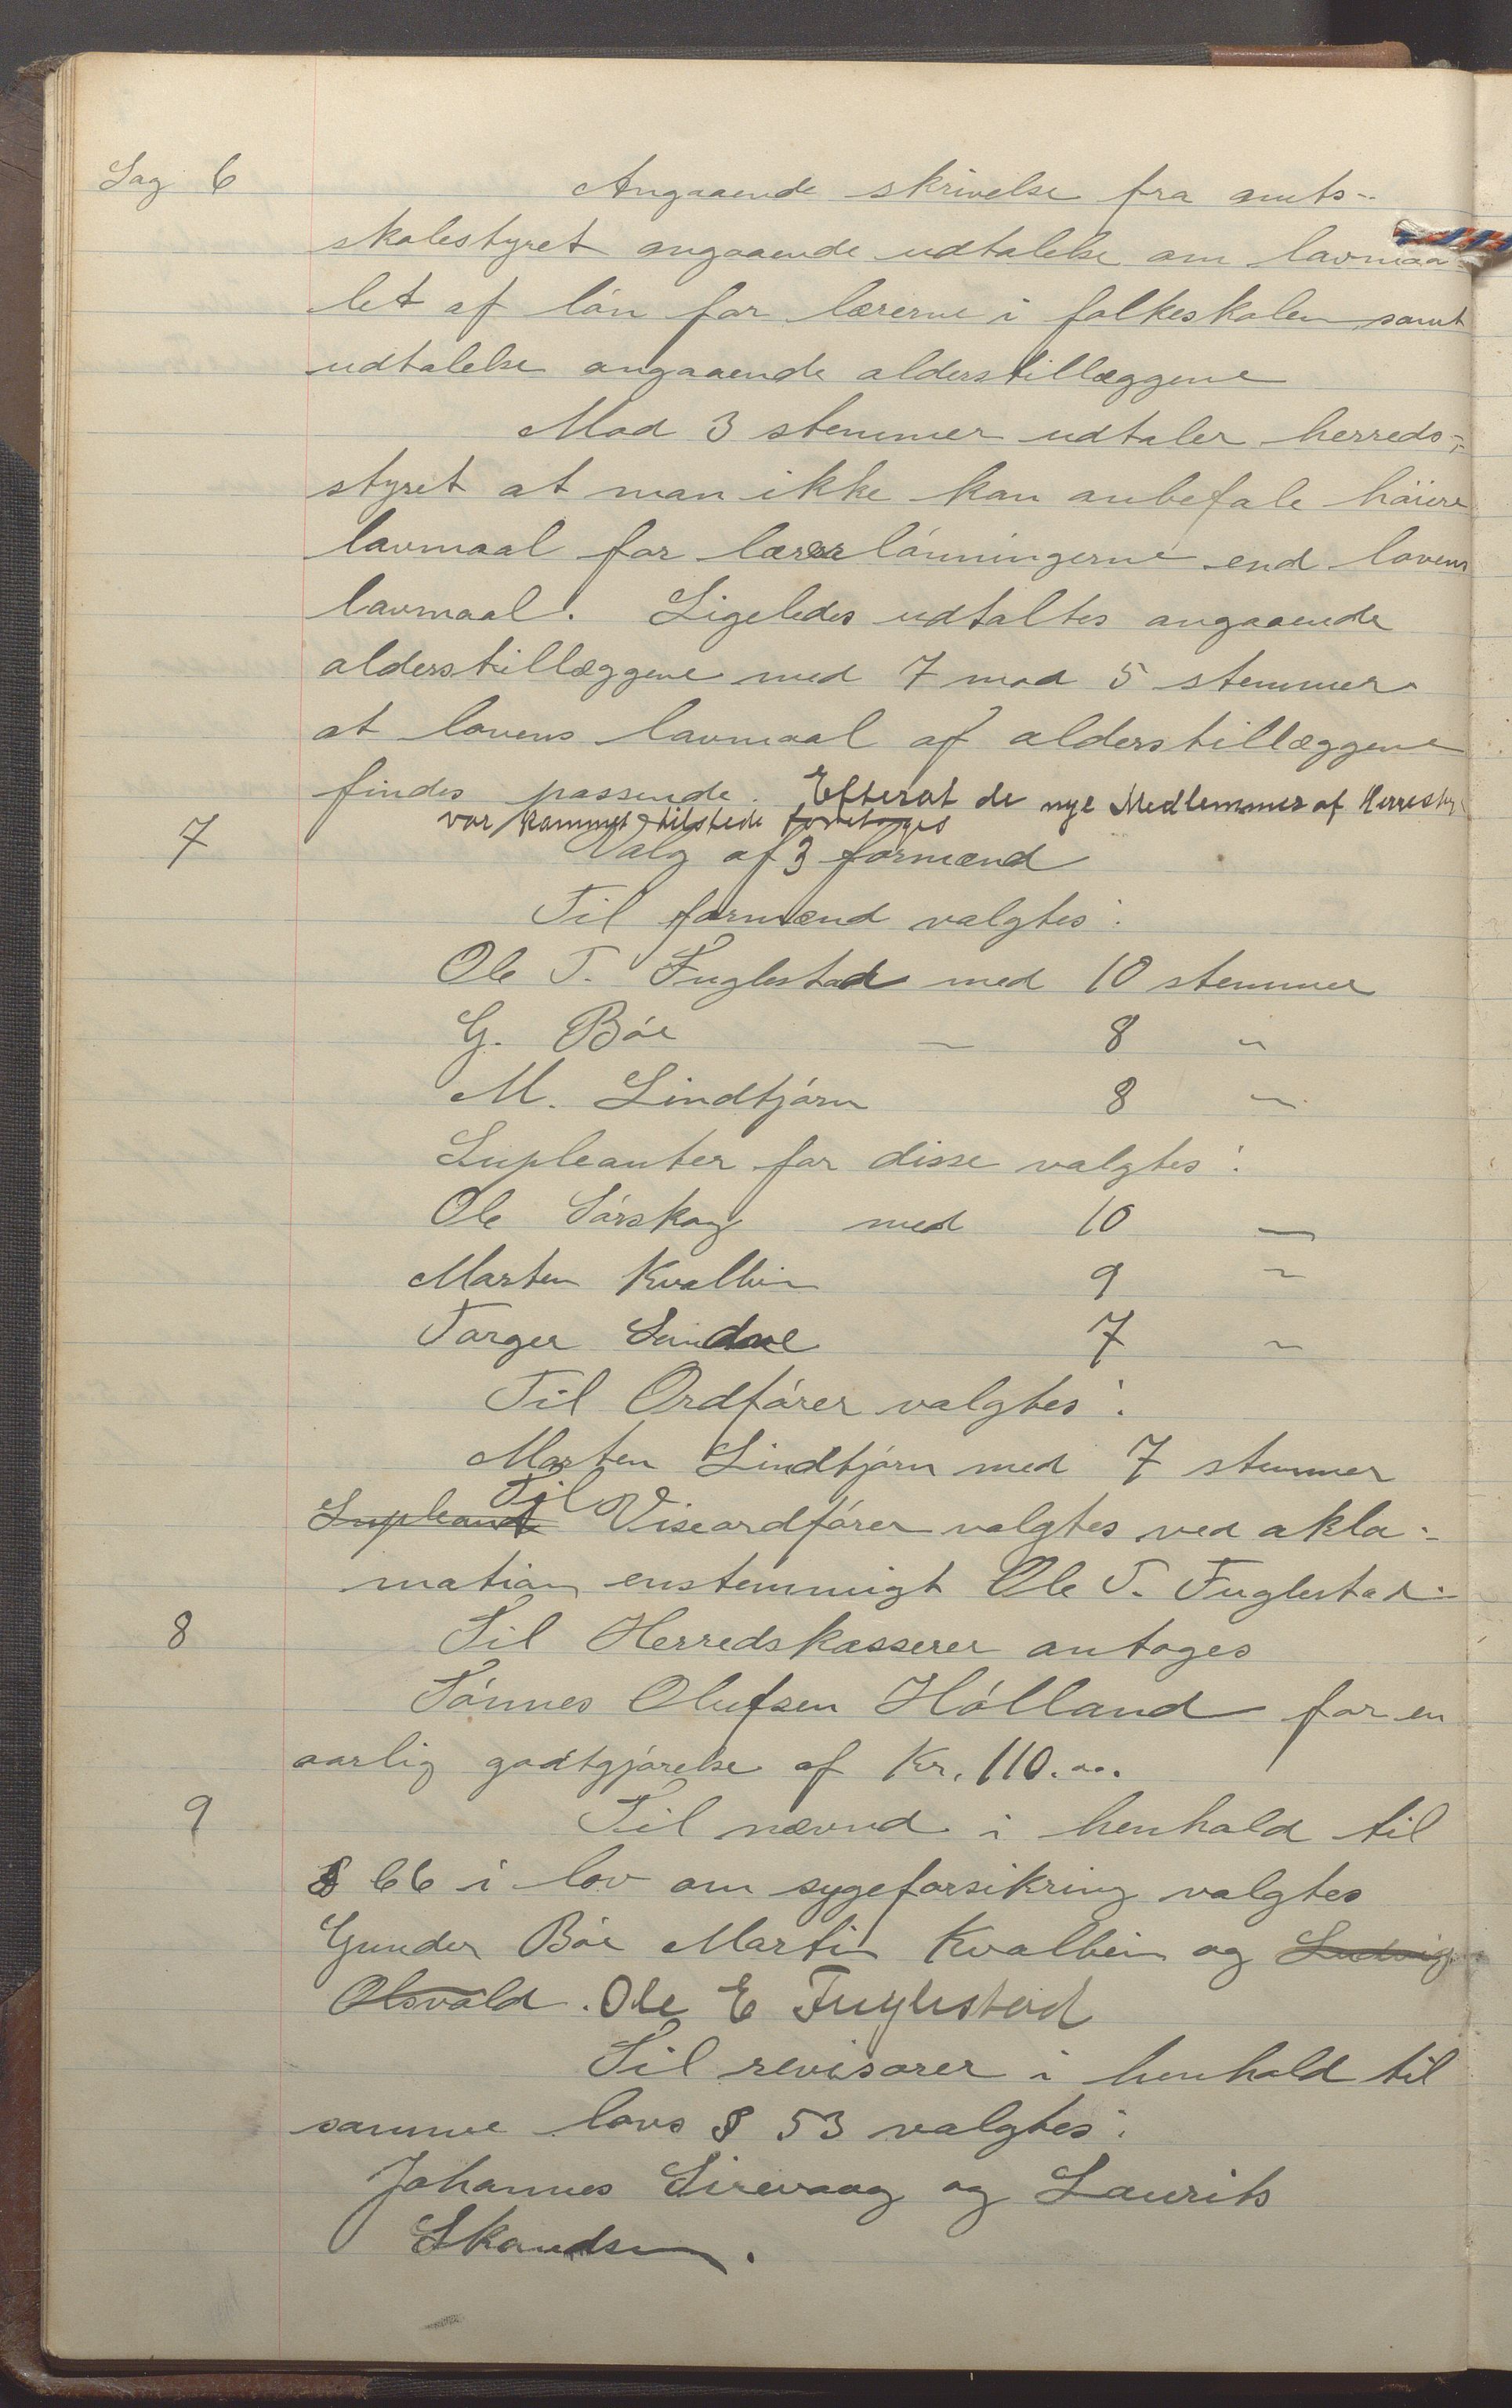 Sag 6 Angaaende skrivelse fra amts-
skolestyret angaaende udtalelse om lavmaa-
let af lön for lærerne i folkeskolen samt
udtalelse angaaende alderstillæggene
Mod 3 stemmer udtaler herreds-
styret at man ikke kan anbefale höiere
lavmaal for lærerlönningerne end lovens
lavmaal. Ligeledes udtaltes angaaende
alderstillæggene med 7 mod 5 stemmer
at lovens lavmaal af alderstillæggene
findes passende. Efterat de nye Medlemmer af Herresty
var kommet tilstede foretoges
7 Valg af 3 formænd
Til formænd valgtes:
Ole T. Fuglestad med 10 stemmer
G. Böe – 8 "
M. Lindtjörn 8 "
Supleanter for disse valgtes:
Ole Sörskog med 10 "
Marten Kvalbein 9 "
Torger 7 "
Til Ordförer valgtes:
Morten Lindtjörn med 7 stemmer
Supleant Til Viseordförer valgtes ved akla-
mation enstemmigt Ole T. Fuglestad.
8 Til Herredskasserer antoges
Tönnes Olufsen Hölland for en
aarlig godtgjörelse af Kr. 110.00.
9 Til nævnd i henhold til
§ 66 i lov om sygeforsikring valgtes
Gunder Böe Martin Kvalbein og Ludvig
Olsvold. Ole E Fuglestad
Til revisorer i henhold til
samme lovs § 53 valgtes:
Johannes Sirevaag og Laurits
Skandsen.